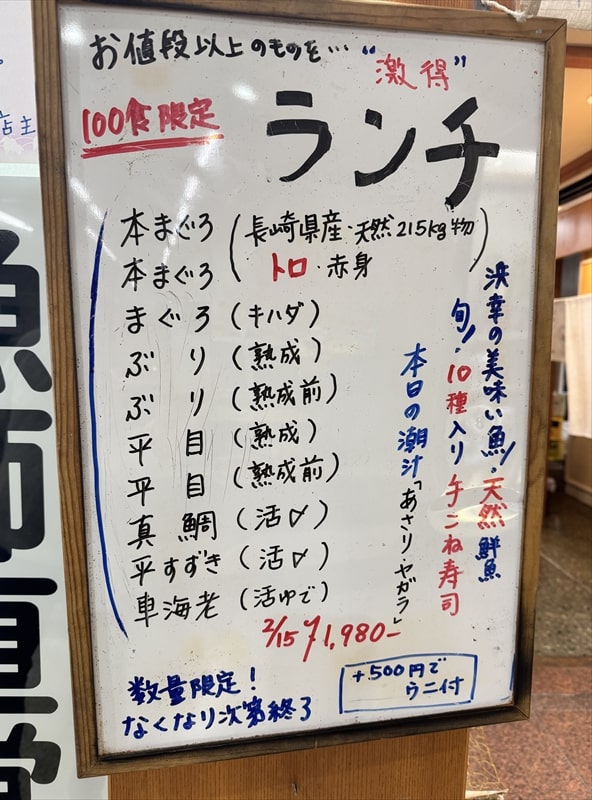 お値段以上のものを…"激得"
100食限定
ランチ
本まぐろ (長崎県産・天然215kg物)
本まぐろ (トロ・赤身)
まぐろ (キハダ)
ぶり (熟成)
ぶり (熟成前)
平目 (熟成)
平目 (熟成前)
真鯛 (活〆)
平すずき (活〆)
車海老 (活ゆで)
浜幸の美味い魚!・天然鮮魚
旬!・10種入り手こね寿司
本日の潮汁「あさり・ヤガラ」
2/15 ¥1,980-
数量限定!
なくなり次第終了
+500円で
ウニ付
店主
魚
直営